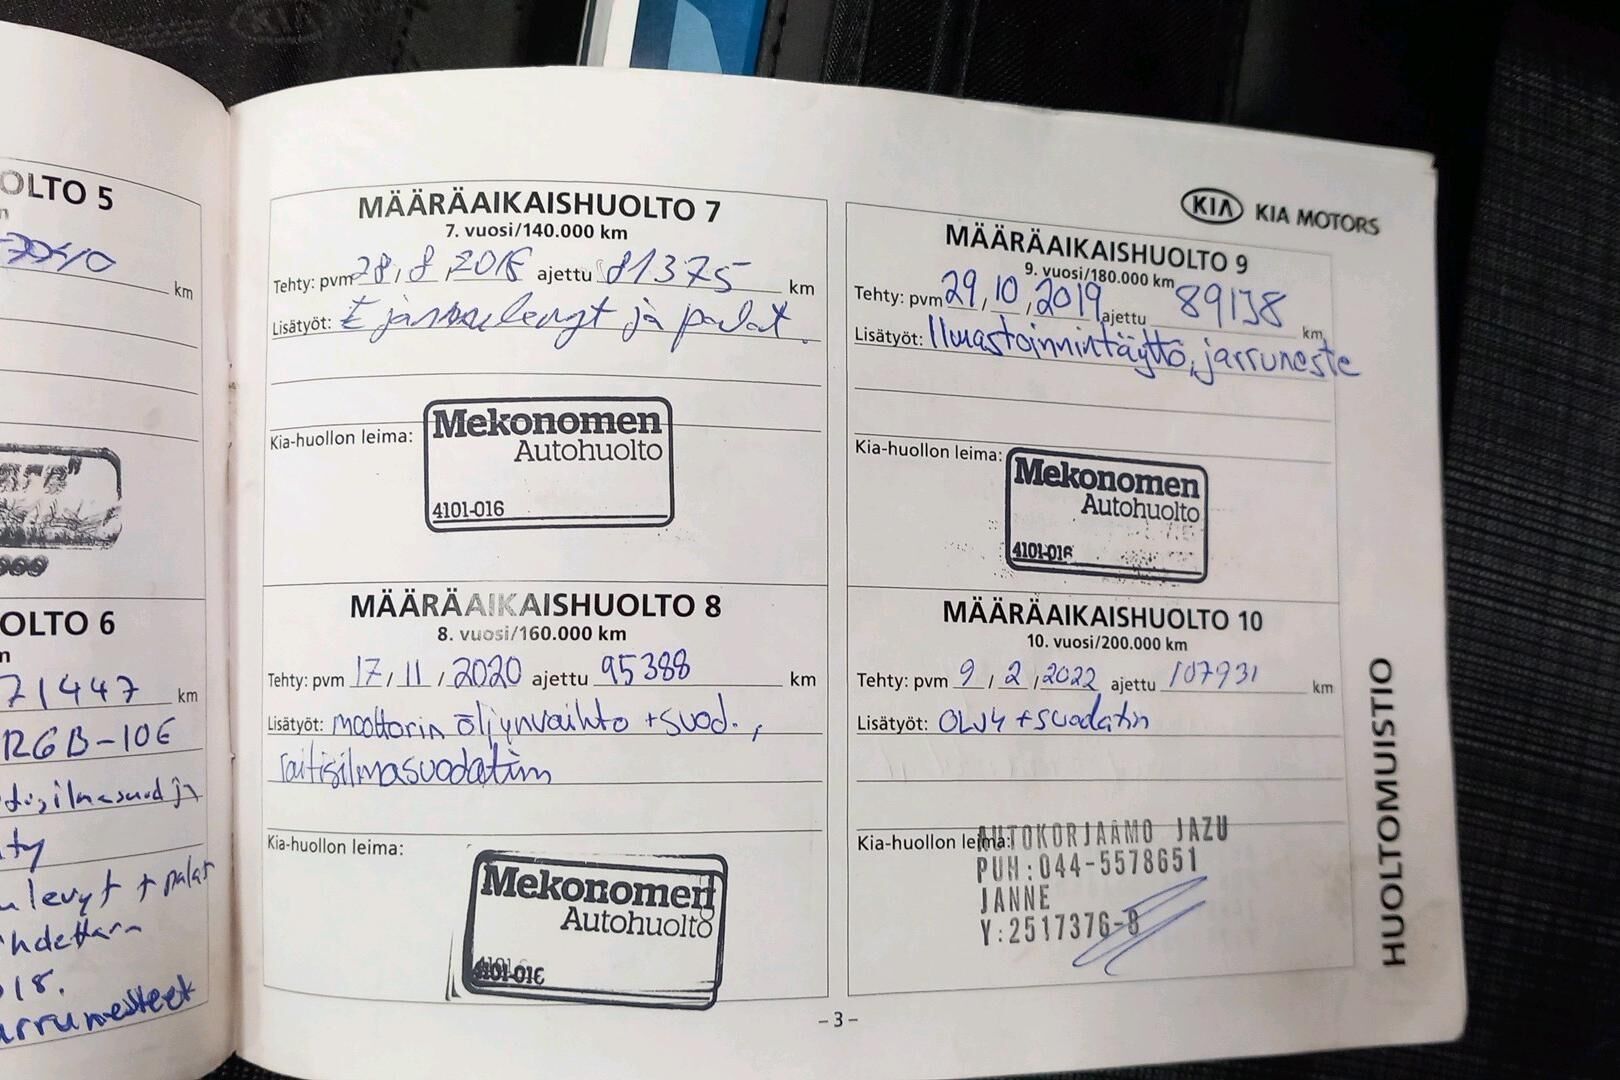 OLTO 5
km
OLTO 6
71447 km
RGB-10E
18.
MÄÄRÄAIKAISHUOLTO 7
7. vuosi/140.000 km
Tehty: pvm 28/8/2018 ajettu 81375 km
Lisätyöt: E jarrulevyt ja palat.
Kia-huollon leima:
Mekonomen
Autohuolto
4101-016
MÄÄRÄAIKAISHUOLTO 8
8. vuosi/160.000 km
Tehty: pvm 17/11/2020 ajettu 95388 km
Lisätyöt: moottorin öljynvaihto + suod.,
raitisilmasuodatin
Kia-huollon leima:
Mekonomen
Autohuolto
4101-016
KIA KIA MOTORS
MÄÄRÄAIKAISHUOLTO 9
9. vuosi/180.000 km
Tehty: pvm 29/10/2019 ajettu 89138 km
Lisätyöt: Ilmastoinnintäyttö, jarruneste
Kia-huollon leima:
Mekonomen
Autohuolto
4101-016
MÄÄRÄAIKAISHUOLTO 10
10. vuosi/200.000 km
Tehty: pvm 9/2/2022 ajettu 107931 km
Lisätyöt: ÖLJY + suodatin
Kia-huollon leima:
AUTOKORJAAMO JAZU
PUH:044-5578651
JANNE
Y:2517376-8
HUOLTOMUISTIO
-3-